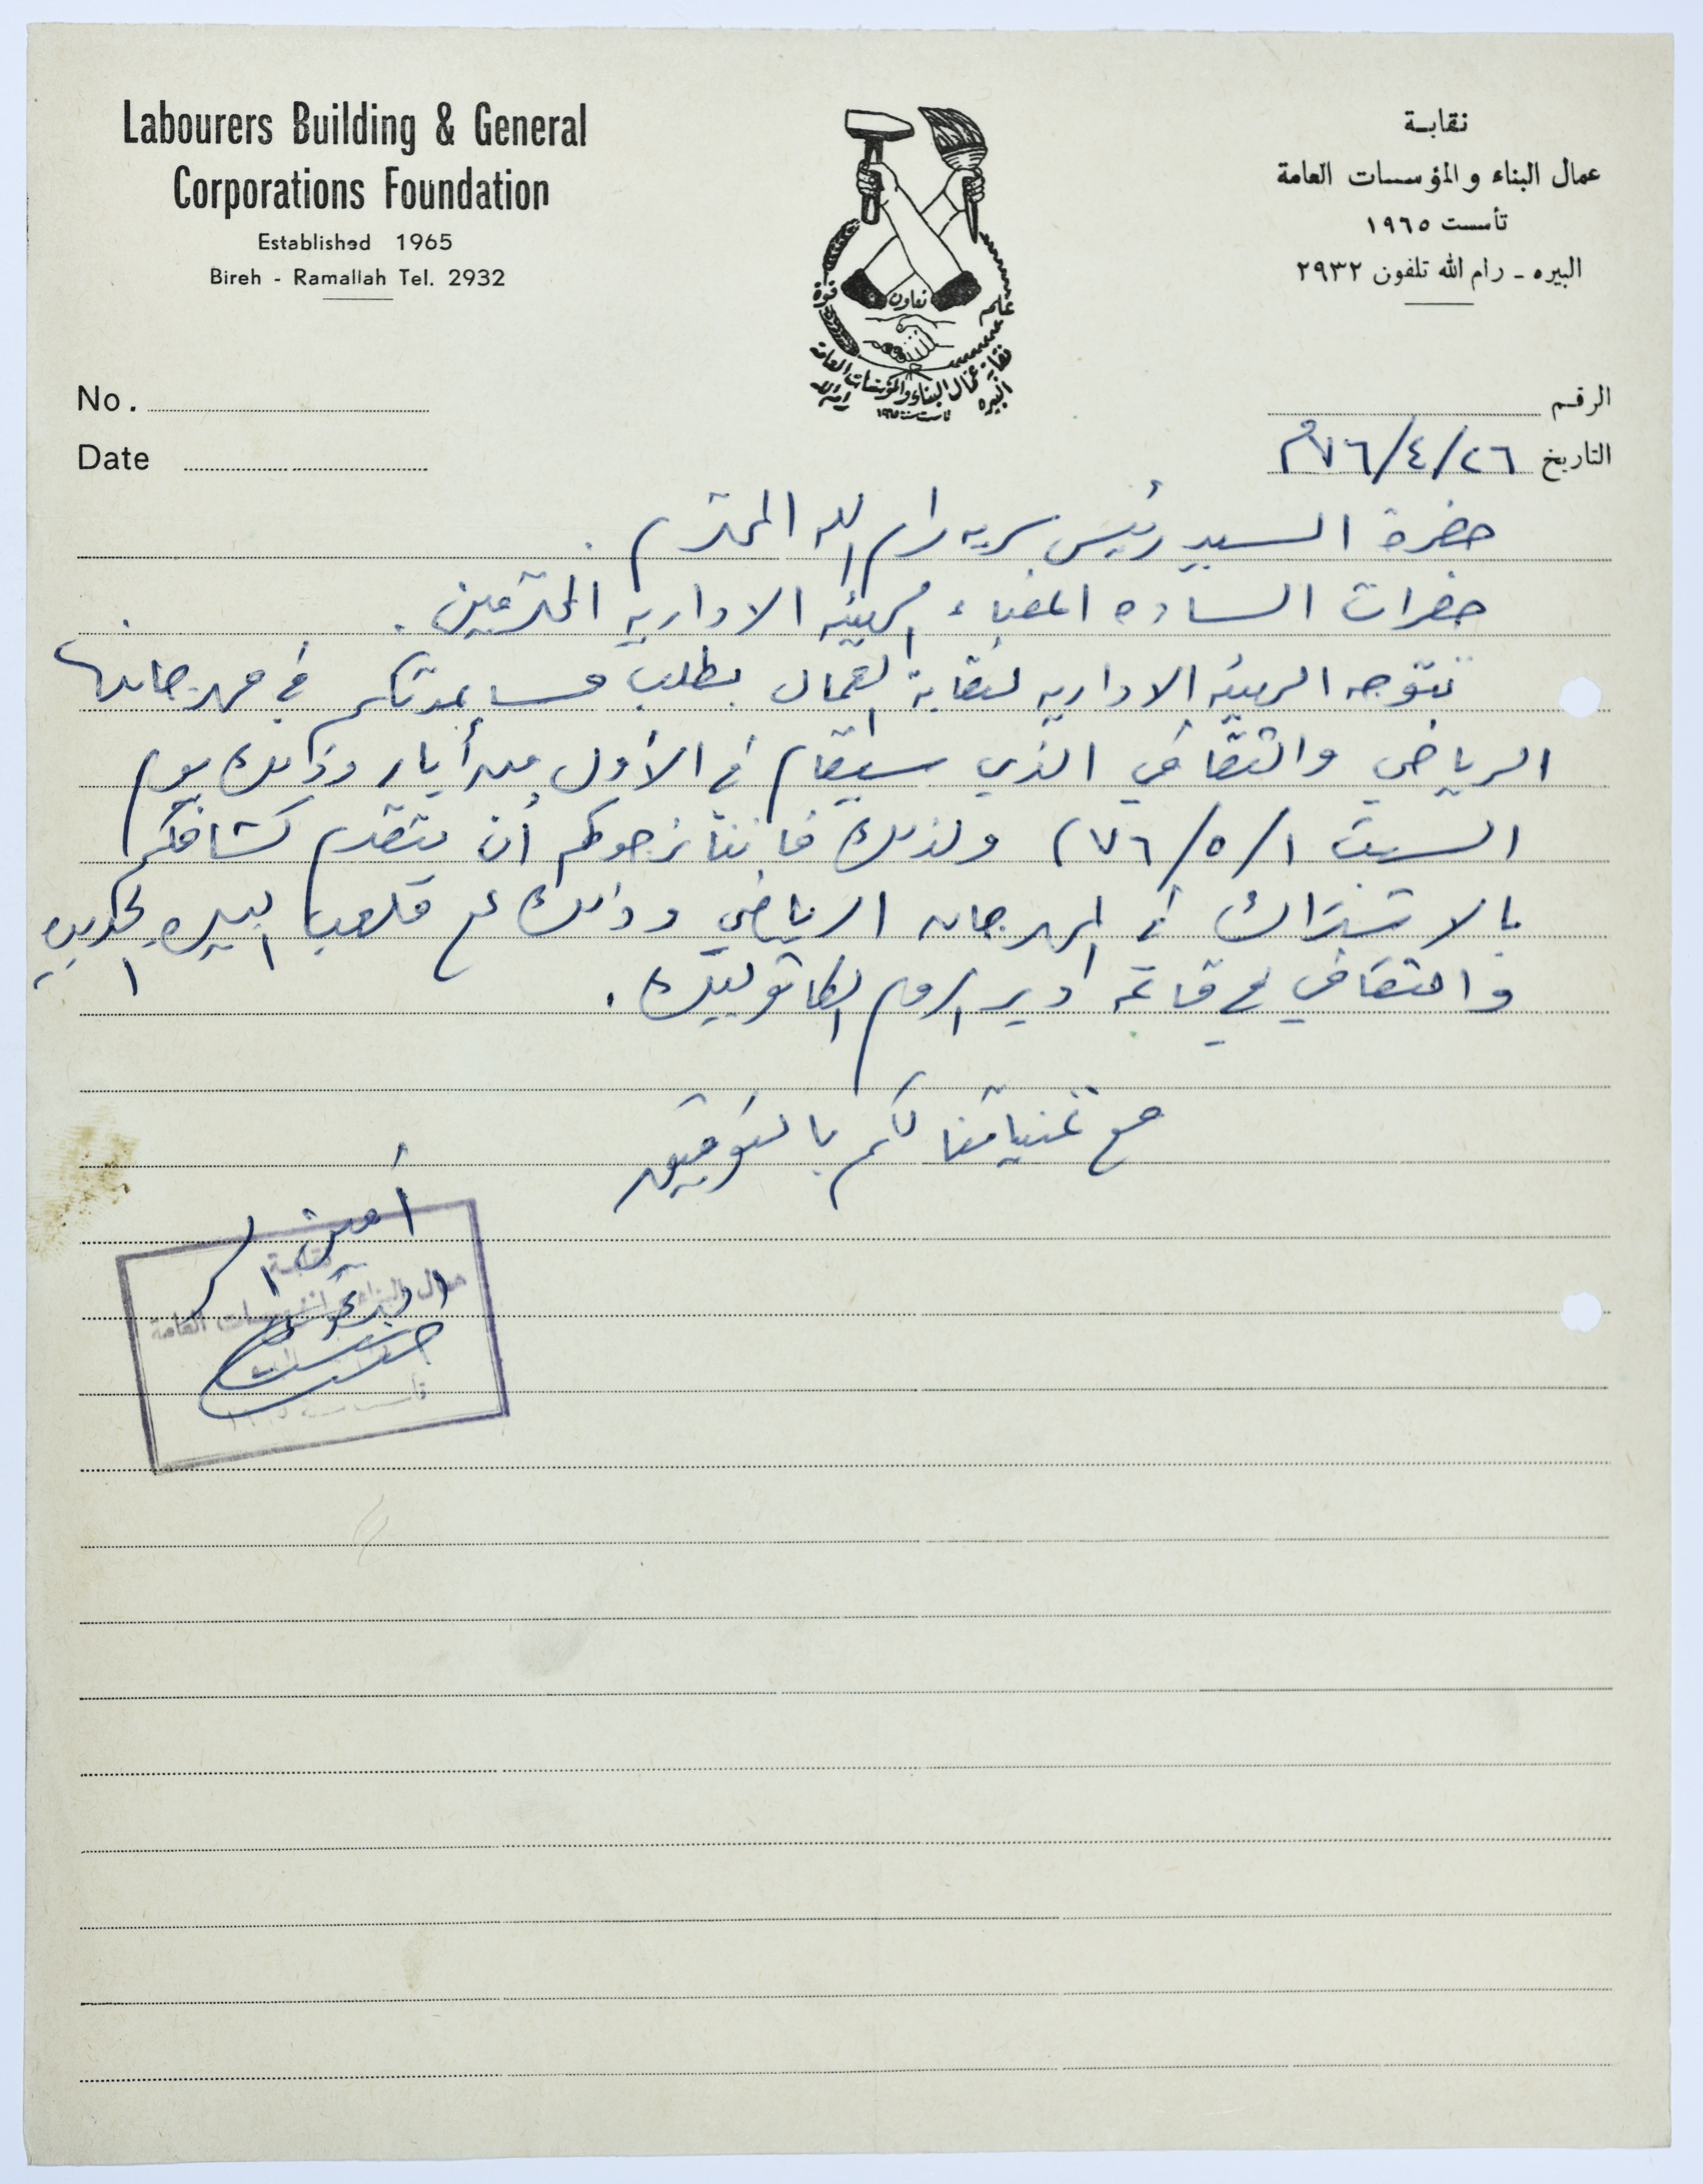 Labourers Building & General
Corporations Foundation
Established 1965
Bireh - Ramallah Tel. 2932
نقابة
عمال البناء والمؤسسات العامة
تأسست ١٩٦٥
البيره - رام الله تلفون ٢٩٣٢
قوة
تعاون
علم
نقابة عمال البناء والمؤسسات العامة
البيره رام الله
تأسست سنة ١٩٦٥
No.
الرقم
Date
التاريخ ٢٦/٤/٧٦م
حضرة السيد رئيس سريه رام الله المحترم .
حضرات الساده اعضاء الهيئه الاداريه المحترمين .
تتوجه الهيئه الاداريه لنقابة العمال بطلب مساعدتكم في مهرجانها
الرياضي والثقافي الذي سيقام في الأول من أيار وذلك يوم
السبت ١/٥/٧٦م ولذلك فاننا نرجوكم أن يتقدم كشافكم
بالاشتراك في المهرجان الرياضي وذلك على ملعب البيره الجديد
والثقافي في قاعة دير الروم الكاثوليك .
مع تمنياتنا لكم بالتوفيق
أمين السر
نقابة
عمال البناء والمؤسسات العامة